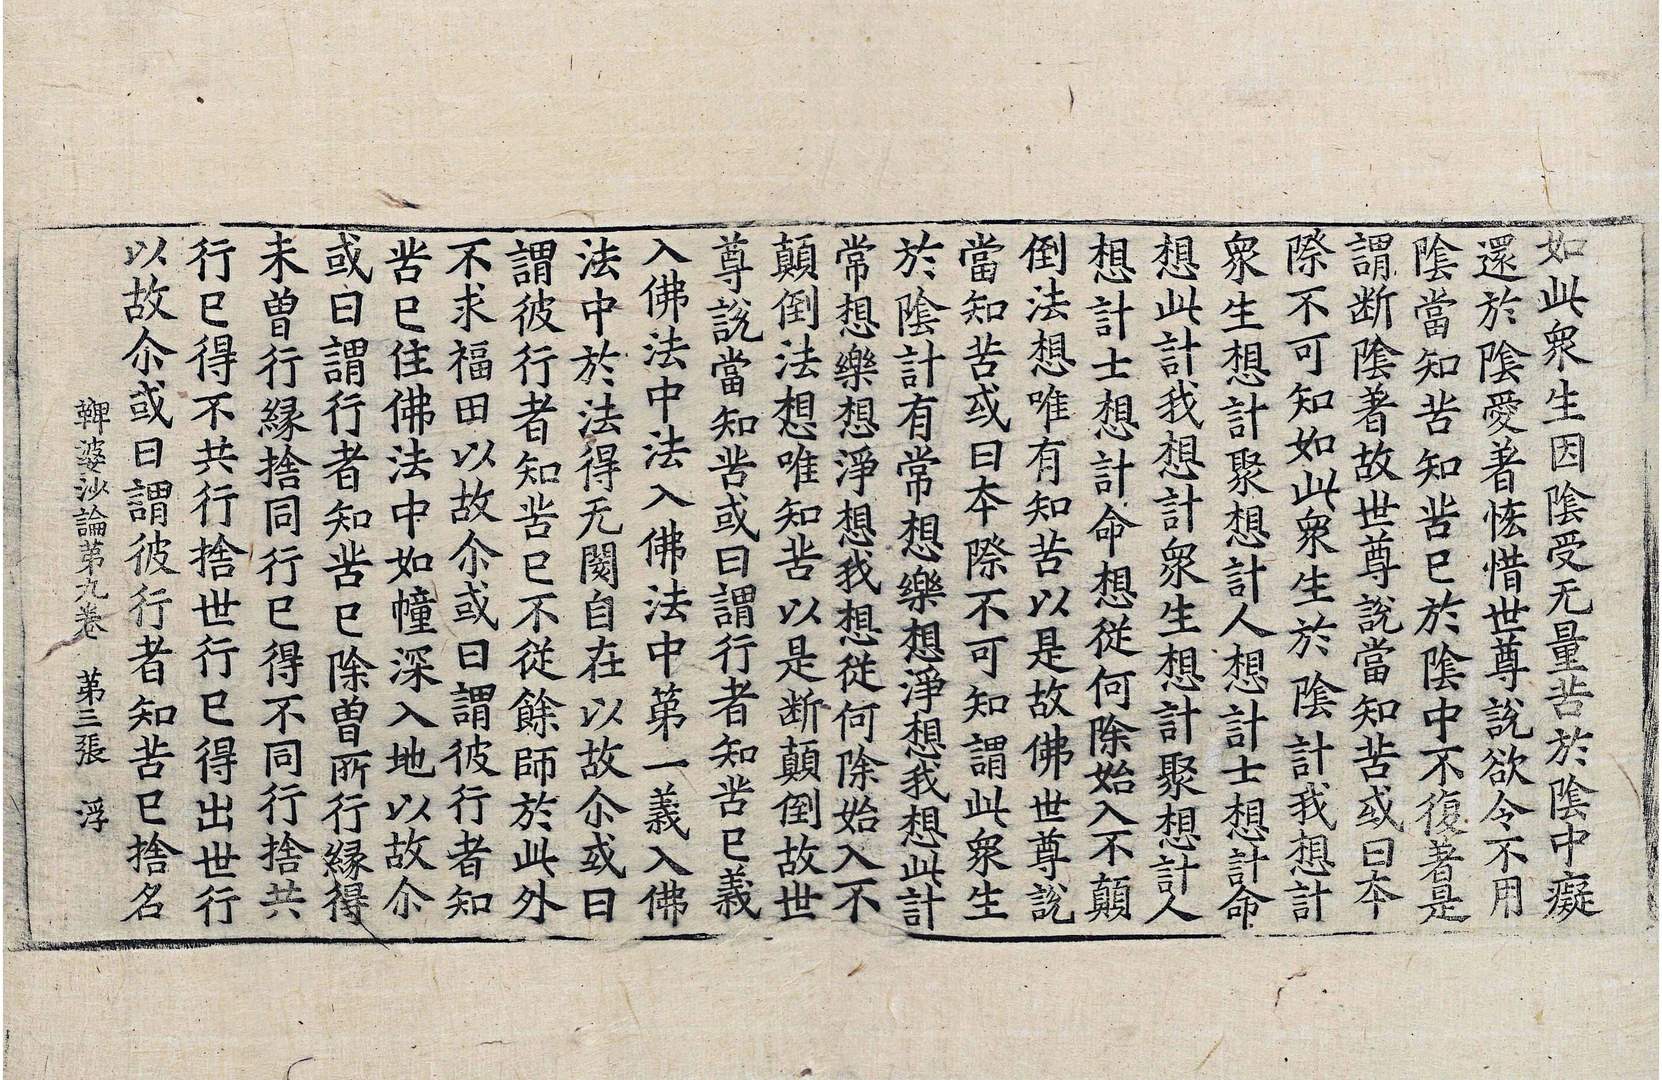 如此衆生因陰受无量苦於陰中癡
還於陰愛著恡惜世尊說欲令不用
陰當知苦知苦已於陰中不復著是
謂断陰著故世尊說當知苦或曰本
際不可知如此衆生於陰計我想計
衆生想計聚想計人想計士想計命
想此計我想計衆生想計聚想計人
想計士想計命想從何除始入不顛
倒法想唯有知苦以是故佛世尊說
當知苦或曰本際不可知謂此衆生
於陰計有常想樂想淨想我想此計
常想樂想淨想我想從何除始入不
顛倒法想唯知苦以是断顛倒故世
尊說當知苦或曰謂行者知苦已義
入佛法中法入佛法中第一義入佛
法中於法得无閡自在以故尒或曰
謂彼行者知苦已不從餘師於此外
不求福田以故尒或曰謂彼行者知
苦已住佛法中如幢深入地以故尒
或曰謂行者知苦已除曾所行緣得
未曾行緣捨同行已得不同行捨共
行已得不共行捨世行已得出世行
以故尒或曰謂彼行者知苦已捨名
鞞婆沙論第九卷　第三張　浮